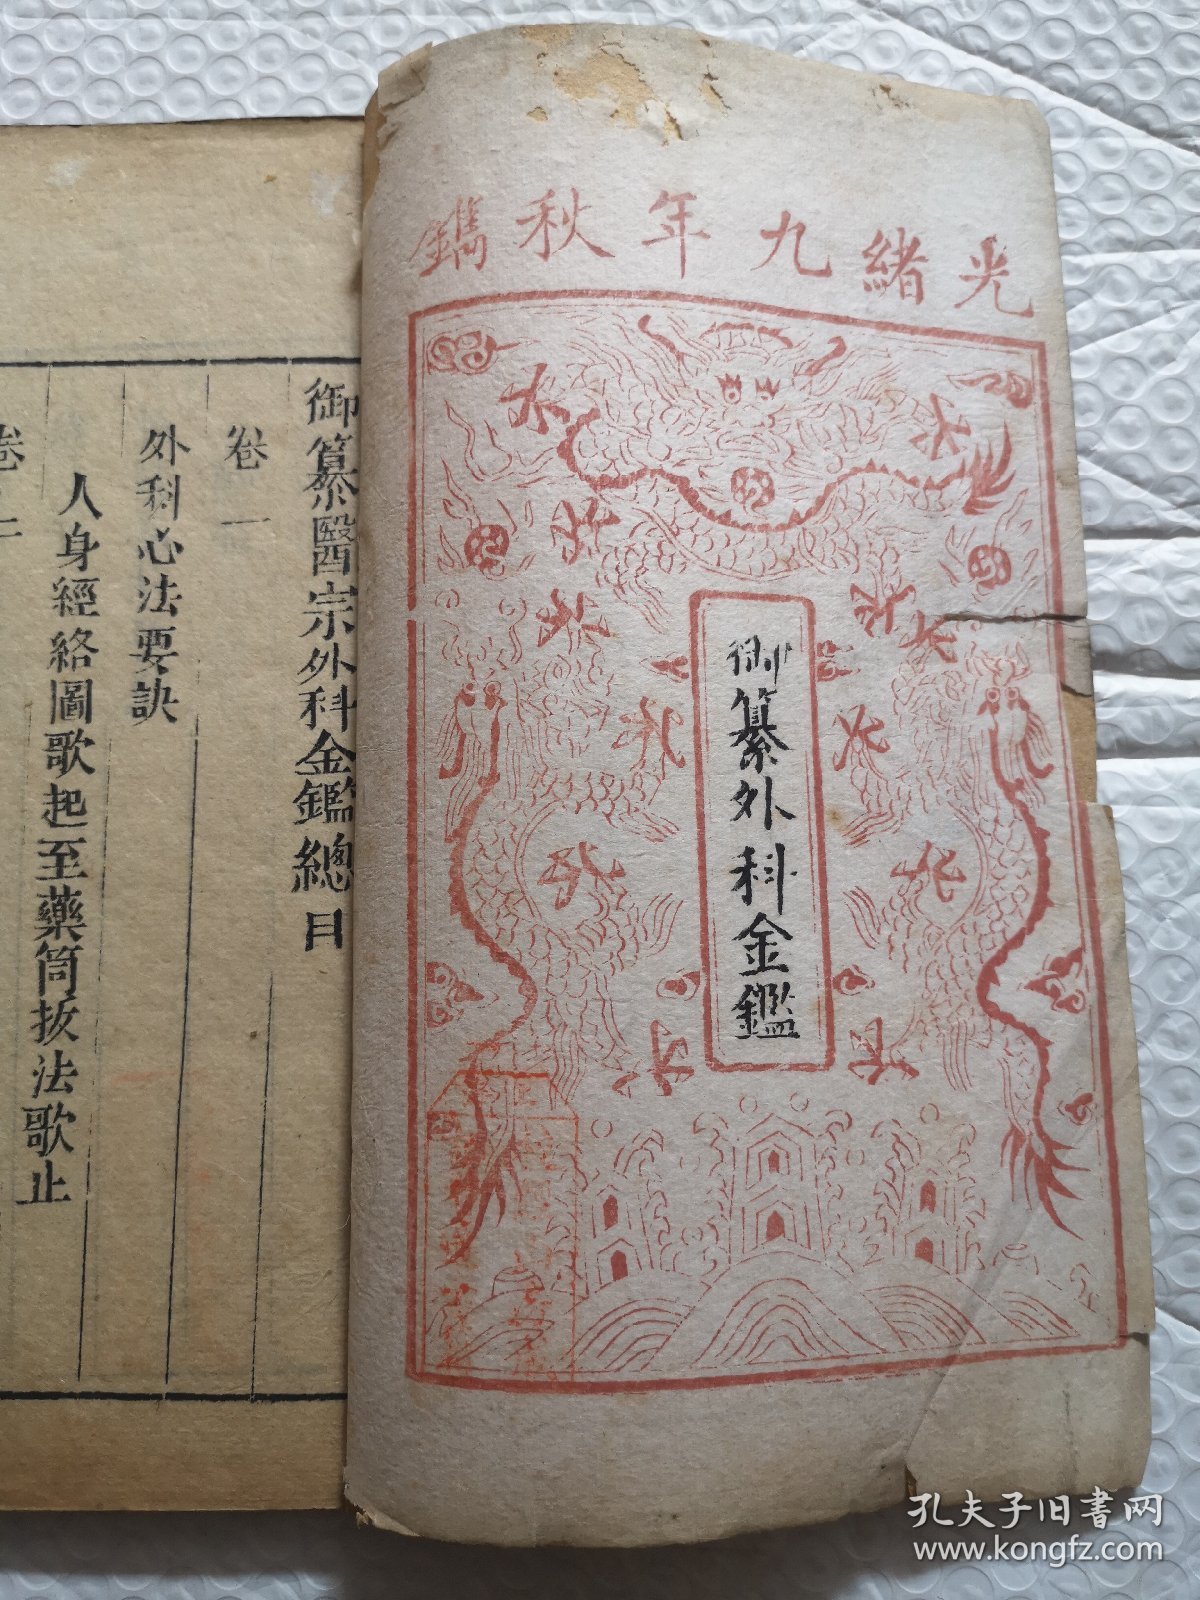 光緒九年秋鐫
御纂外科金鑑
御纂醫宗外科金鑑總目
卷一
外科心法要訣
人身經絡圖歌起至藥筒拔法歌止
卷二
孔夫子旧書网
www.kongfz.com